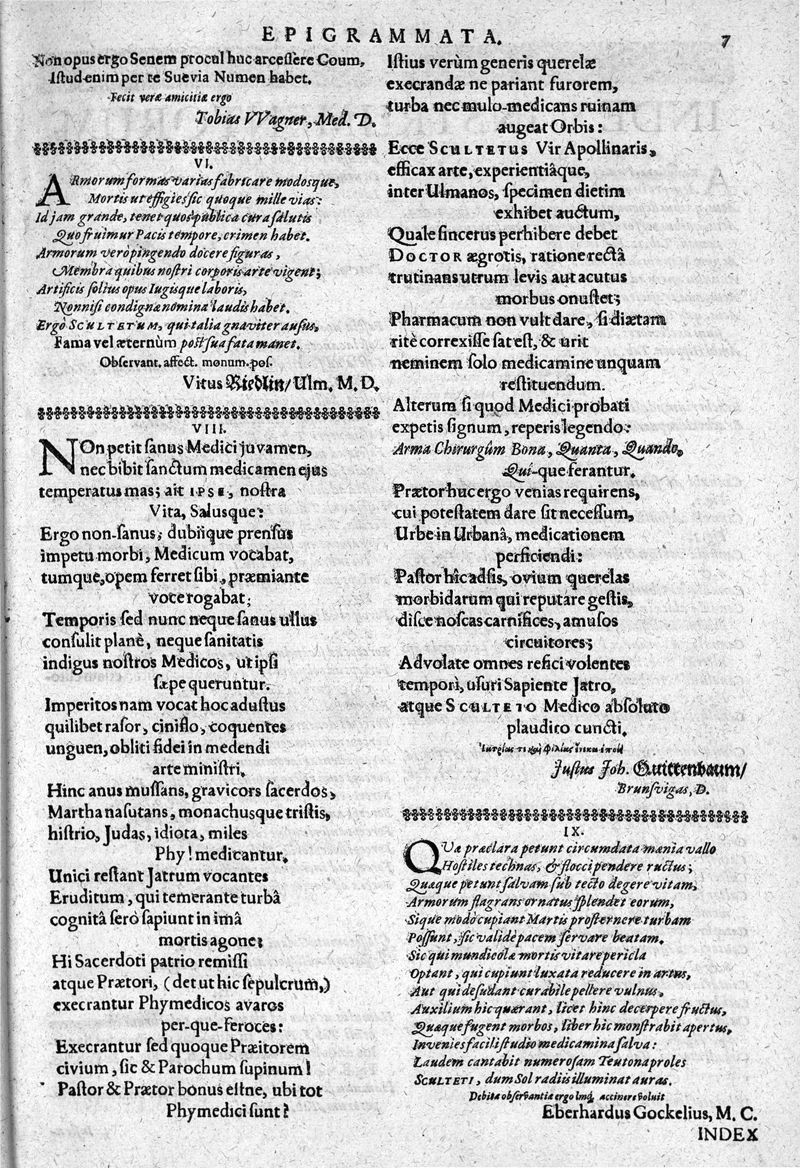 EPIGRAMMATA.
7
Non opus ergo Senem procul huc arcessere Coum,
Istud enim per te Suevia Numen habet.
Fecit veræ amicitiæ ergo
Tobias VVagner, Med. D.
VI.
ARmorum formas varias fabricare modosque,
Mortis ut effigies sic quoque mille vias:
Id jam grande, tenet quos publica cura salutis
Quo fruimur Pacis tempore, crimen habet.
Armorum verò pingendo docere figuras,
Membra quibus nostri corporis arte vigent;
Artificis solius opus Iugisque laboris,
Nonnisi condigna nomina laudis habet.
Ergò SCULTETUM, qui talia gnaviter ausus,
Fama vel æternùm post sua fata manet.
Observant. affect. monum. pos.
Vitus Riedlin/ Ulm. M. D.
VIII.
NOn petit sanus Medici juvamen,
nec bibit sanctum medicamen ejus
temperatus mas; ait IPSE, nostra
Vita, Salusque:
Ergo non-sanus; dubiique prensus
impetu morbi, Medicum vocabat,
tumque, opem ferret sibi, præmiante
voce rogabat;
Temporis sed nunc neque sanus ullus
consulit planè, neque sanitatis
indigus nostros Medicos, ut ipsi
sæpe queruntur.
Imperitos nam vocat hoc adustus
quilibet rasor, ciniflo, coquentes
unguen, obliti fidei in medendi
arte ministri.
Hinc anus mussans, gravior sacerdos,
Martha nasutans, monachusque tristis,
histrio, Judas, idiota, miles
Phy! medicantur.
Unici restant Jatrum vocantes
Eruditum, qui temerante turbâ
cognitâ serò sapiunt in imâ
mortis agone:
Hi Sacerdoti patrio remissi
atque Prætori, (det ut hic sepulcrum,)
execrantur Phymedicos avaros
per-que-feroces:
Execrantur sed quoque Præitorem
civium, sic & Parochum supinum!
Pastor & Prætor bonus estne, ubi tot
Phymedici sunt?
Istius verùm generis querelæ
execrandæ ne pariant furorem,
turba nec mulo-medicans ruinam
augeat Orbis:
Ecce SCULTETUS Vir Apollinaris,
efficax arte, experientiâque,
inter Ulmanos, specimen dietim
exhibet auctum,
Quale sincerus perhibere debet
DOCTOR ægrotis, ratione rectâ
trutinans utrum levis aut acutus
morbus onustet;
Pharmacum non vult dare, si diætam
ritè correxisse sat est, & urit
neminem solo medicamine unquam
restituendum.
Alterum si quod Medici probati
expetis signum, reperis legendo:
Arma Chirurgûm Bona, Quanta, Quando,
Qui-que ferantur.
Prætor huc ergo venias requirens,
cui potestatem dare sit necessum,
Urbe in Urbanâ, medicationem
perficiendi:
Pastor hîc adsis, ovium querelas
morbidarum qui reputare gestis,
disce noscas carnifices, amusos
circuitores;
Advolate omnes refici volentes
tempori, usuri Sapiente Jatro,
atque SCULTETO Medico absoluto
plaudito cuncti.
Justus Joh. Guittenbaum/
Brunsvigas, D.
IX.
QUæ præclara petunt circumdata mœnia vallo
Hostiles technas, & flocci pendere ructus;
Quæque petunt salvam sub tecto degere vitam,
Armorum flagrans ornatus splendet eorum,
Sique modò cupiant Martis prosternere turbam
Possunt, sic validè pacem servare beatam.
Sic qui mundicolæ mortis vitare pericla
Optant, qui cupiunt luxata reducere in artus,
Aut qui desudant curabile pellere vulnus,
Auxilium hic quærant, licet hinc decerpere fructus,
Quæque fugent morbos, liber hic monstrabit apertus,
Invenies facili studio medicamina salva:
Laudem cantabit numerosam Teutona proles
SCULTETI, dum Sol radiis illuminat auras.
Debita observantia ergo accinere voluit
Eberhardus Gockelius, M. C.
INDEX